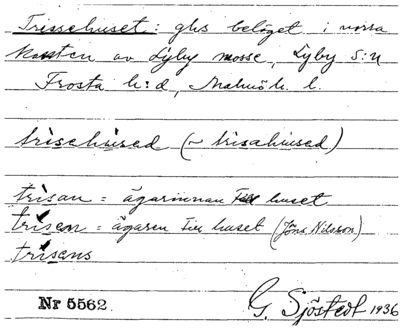 Trissehuset: ghs beläget i norra
kanten av Lyby mosse, Lyby s:n
Frosta h:d, Malmöh. l.
trisehused (~ trisahused)
trisan = ägarinnan till huset
trisen = ägaren till huset (Jöns Nilsson)
trisens
Nr 5562
G. Sjöstedt 1936